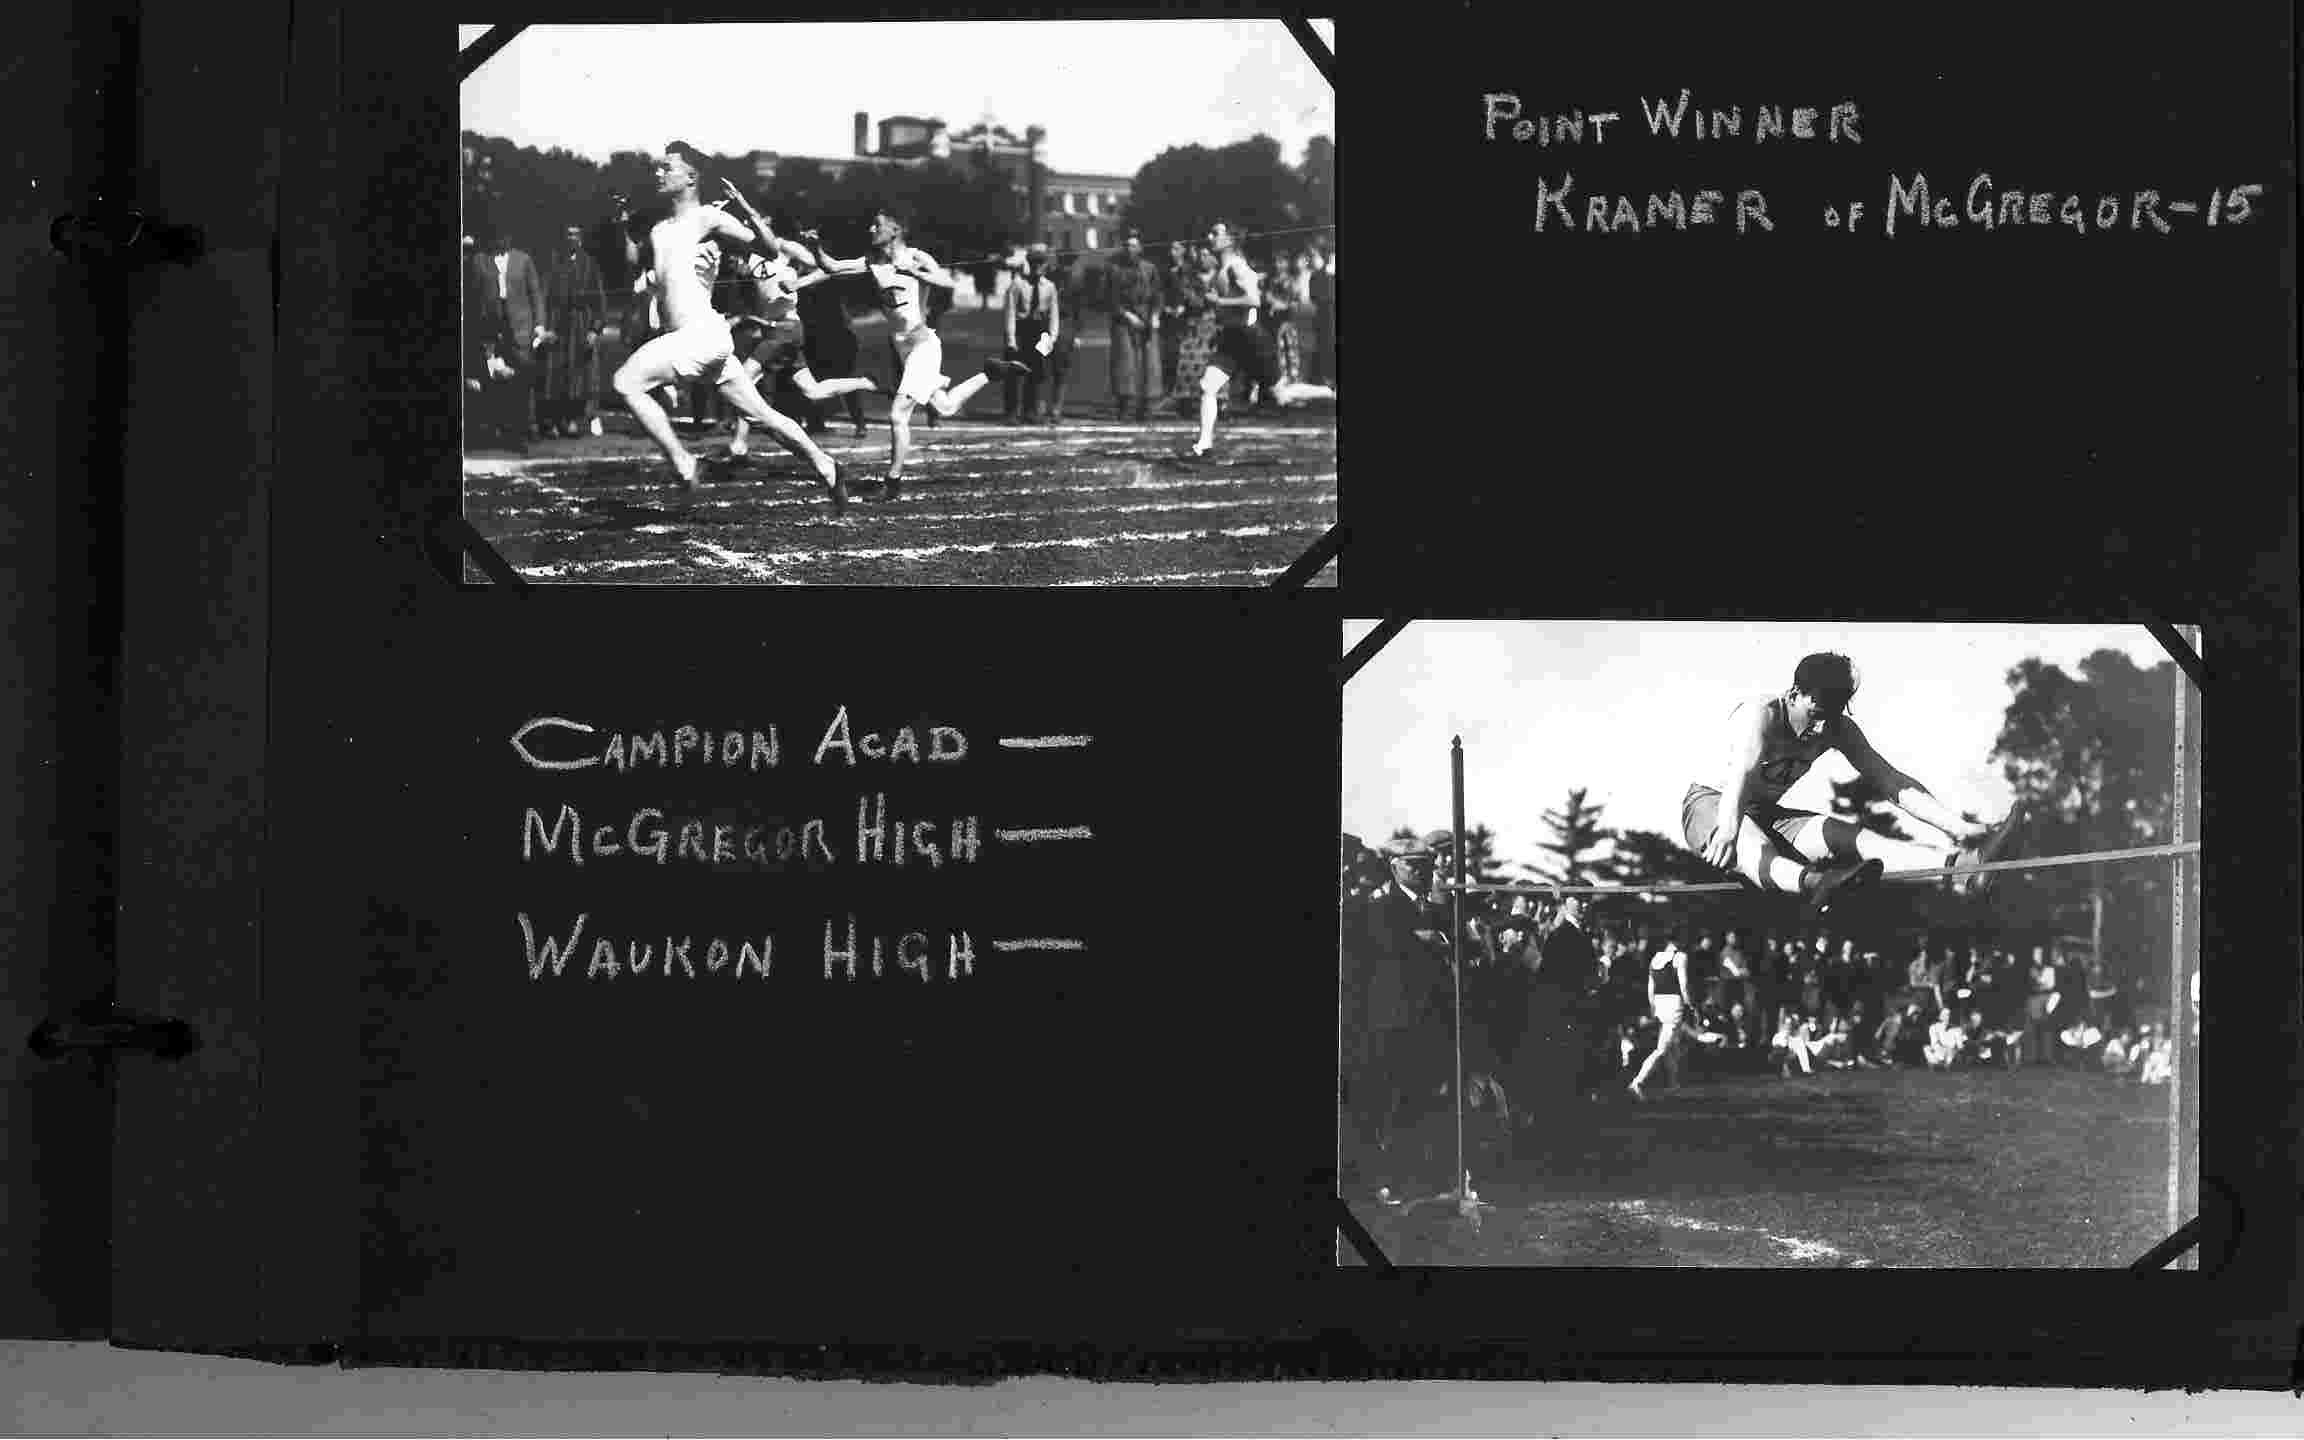 POINT WINNER
KRAMER OF MCGREGOR-15
CAMPION ACAD —
MCGREGOR HIGH —
WAUKON HIGH —